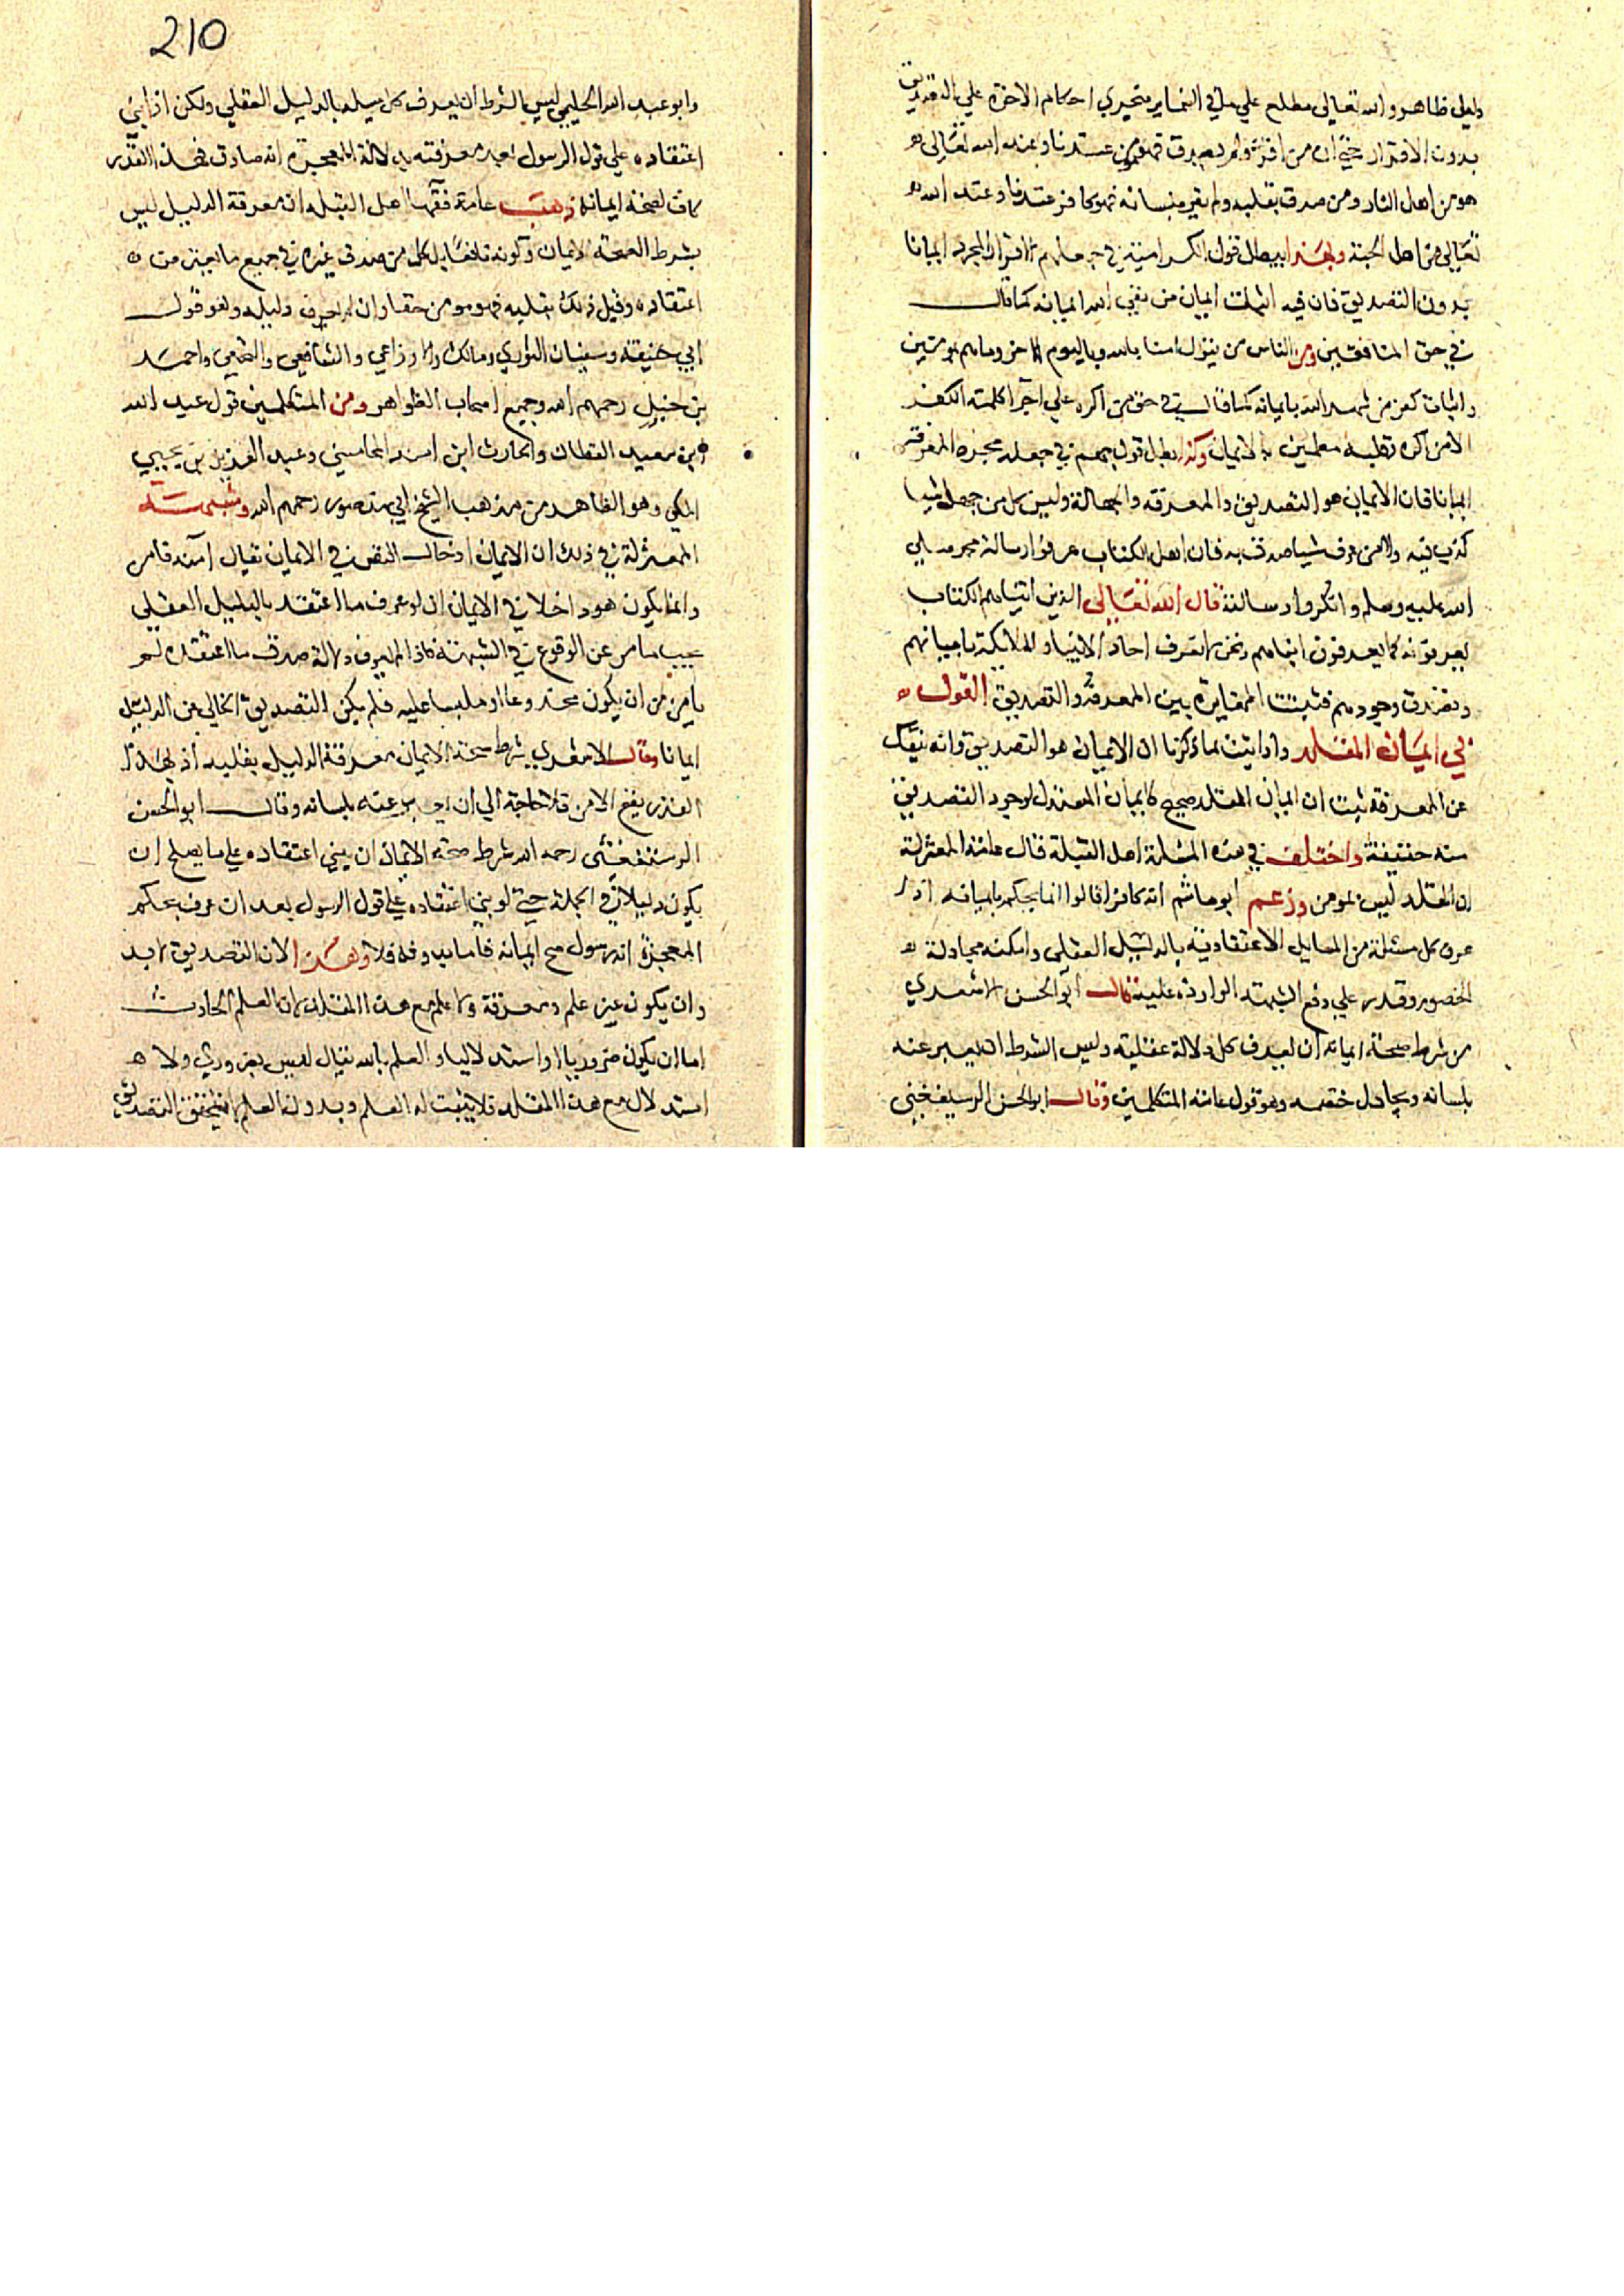 دليل ظاهر والله تعالى مطلع على ما في الضماير فتجري احكام الاخرة علي التصديق
بدون الاقرار حتى ان من اقر ولم يصدق فهو مومن عندنا وعند الله تعالى
هو من اهل النار ومن صدق بقلبه ولم يقر بلسانه فهو كافر عندنا وعند الله
تعالى من اهل الجنة وبهذا يبطل قول الكرامية في جعلهم الاقرار المجرد ايمانا
بدون التصديق فان فيه اثبات ايمان من نفى الله ايمانه كما قال
في حق المنافقين ومن الناس من يقول امنا بالله وباليوم الاخر وما هم بمومنين
واثبات كفر من شهد الله بايمانه كما قال في حق من اكره علي اجرا كلمة الكفر
الا من اكره وقلبه مطمين بالايمان وكذا يبطل قول جهم في جعله مجرد المعرفة
ايمانا فان الايمان هو التصديق والمعرفة والجهالة وليس كل من جهل شيا
كذب فيه ولا من عرف شيا صدق به فان اهل الكتاب عرفوا رسالة محمد صلي
الله عليه وسلم وانكروا رسالته قال الله تعالى الذين اتيناهم الكتاب
يعرفونه كما يعرفون ابناهم ونحن لا نعرف احاد الانبيا والملايكة باعيانهم
ونصدق وجودهم فثبتت المغايرة بين المعرفة والتصديق القول
في ايمان المقلد واذا ثبت بما ذكرنا ان الايمان هو التصديق وانه ينفك
عن المعرفة ثبت ان ايمان المقلد صحيح كايمان المستدل لوجود التصديق
منه حقيقة واختلف في هذه المسئلة اهل القبلة فقال عامة المعتزلة
ان المقلد ليس بمومن وزعم ابو هاشم انه كافر وقالوا انما يحكم بايمانه اذا
عرف كل مسئلة من المسايل الاعتقادية بالدليل العقلي وامكنه مجادلة
الخصوم وقدر علي دفع الشبهة الواردة عليه قال ابو الحسن الاشعري
من شرط صحة ايمانه ان يعرف كل دلالة عقلية وليس الشرط ان يعبر عنه
بلسانه ويجادل خصمه وهو قول عامة المتكلمين وقال ابو الحسن الرستغفني
210
وابو عبد الله الحليمي ليس الشرط ان يعرف كل مسئله بالدليل العقلي ولكن اذا بنى
اعتقاده علي قول الرسول بعد معرفته بدلالة المعجزة انه صادق فهذا القدر
كاف لصحة ايمانه ذهب عامة فقها اهل القبلة ان معرفة الدليل ليس
بشرط لصحة الايمان وكونه نافعا بل كل من صدق غيره في جميع ما يجب من
اعتقاده وقبل ذلك بقلبه فهو مومن حقا وان لم يعرف دليله وهو قول
ابي حنيفة وسفيان الثوري ومالك والاوزاعي والشافعي والنخعي واحمد
بن حنبل رحمهم الله وجميع اصحاب الظواهر ومن المتكلمين قول عبد الله
بن سعيد القطان والحارث ابن اسد المحاسبي وعبد العزيز بن يحيي
المكي وهو الظاهر من مذهب الشيخ ابي منصور رحمهم الله وشبهة
المعتزلة في ذلك ان الايمان ادخال النفس في الايمان يقال آمنه فامن
وانما يكون هو داخلا في الايمان ان لو عرف ما اعتقد بالدليل العقلي
بحيث يامن عن الوقوع في الشبهة فاذا لم يعرف دلالة صدق ما اعتقده لم
يامن من ان يكون مخدوعا او ملبسا عليه فلم يكن التصديق الخالي عن الدليل
ايمانا وقال الاشعري شرط صحة الايمان معرفة الدليل بقلبه اذ بهذا
القدر يقع الامن فلا حاجة الي ان يعبر عنه بلسانه وقال ابو الحسن
الرستغفني رحمه الله شرط صحة الايمان ان يبني اعتقاده علي ما يصلح ان
يكون دليلا في الجملة حتى لو بنى اعتقاده علي قول الرسول بعد ان عرف بحكم
المعجزة انه رسول صح ايمانه فاما بدونه فلا وهذا لان التصديق لا بد
وان يكون عن علم ومعرفة ولا علم مع هذا المقلد لان العلم الحادث
اما ان يكون ضروريا او استدلاليا والعلم بالله تعالى ليس بضروري ولا
استدلال مع هذا المقلد فلا يثبت له العلم وبدون العلم لا يتحقق التصديق